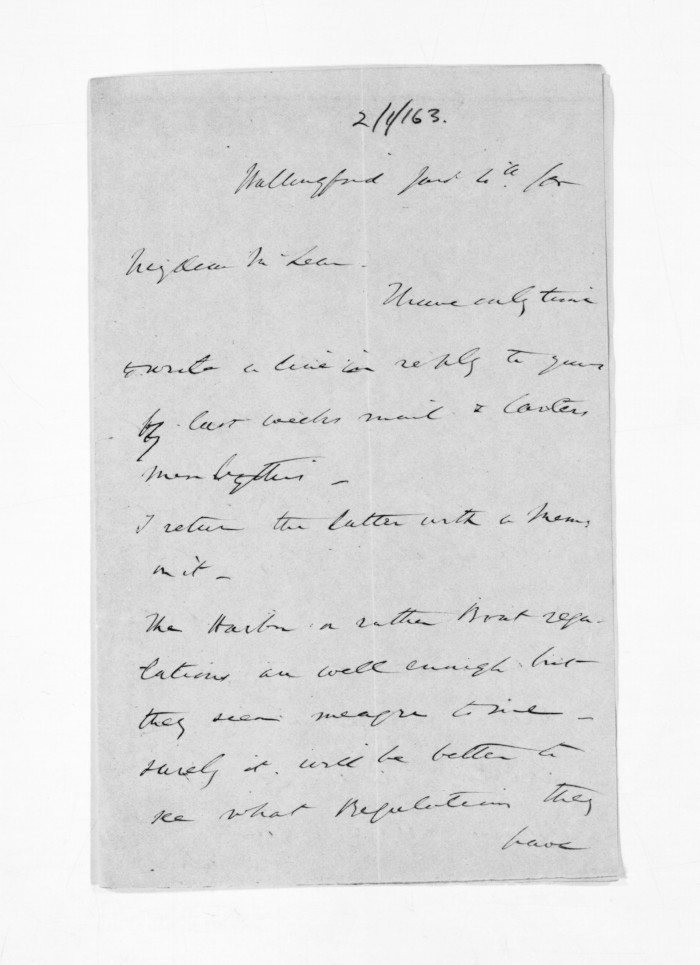 2/1/63.
Wallingford Jany
My dear McLean.
I have only time
to write a line in reply to yours
by last weeks mail & Carters
mem by this -
I return the latter with a Mem:
on it -
The Harbor or rather Boat regu-
lations are well enough but
they seem meagre to me -
surely it will be better to
see what Regulations they
have